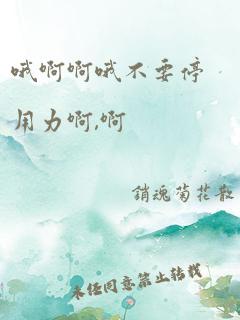 哦啊啊哦不要停
用力啊,啊
銷魂菊花散
未经同意禁止转载